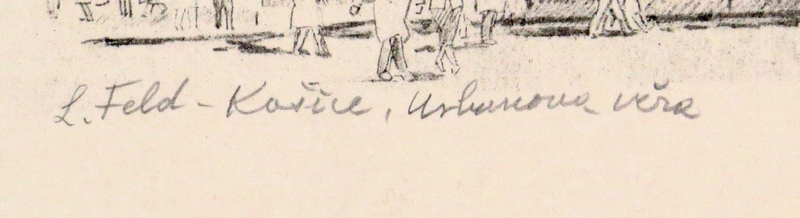 L. Feld - Košice, Urbanova veža